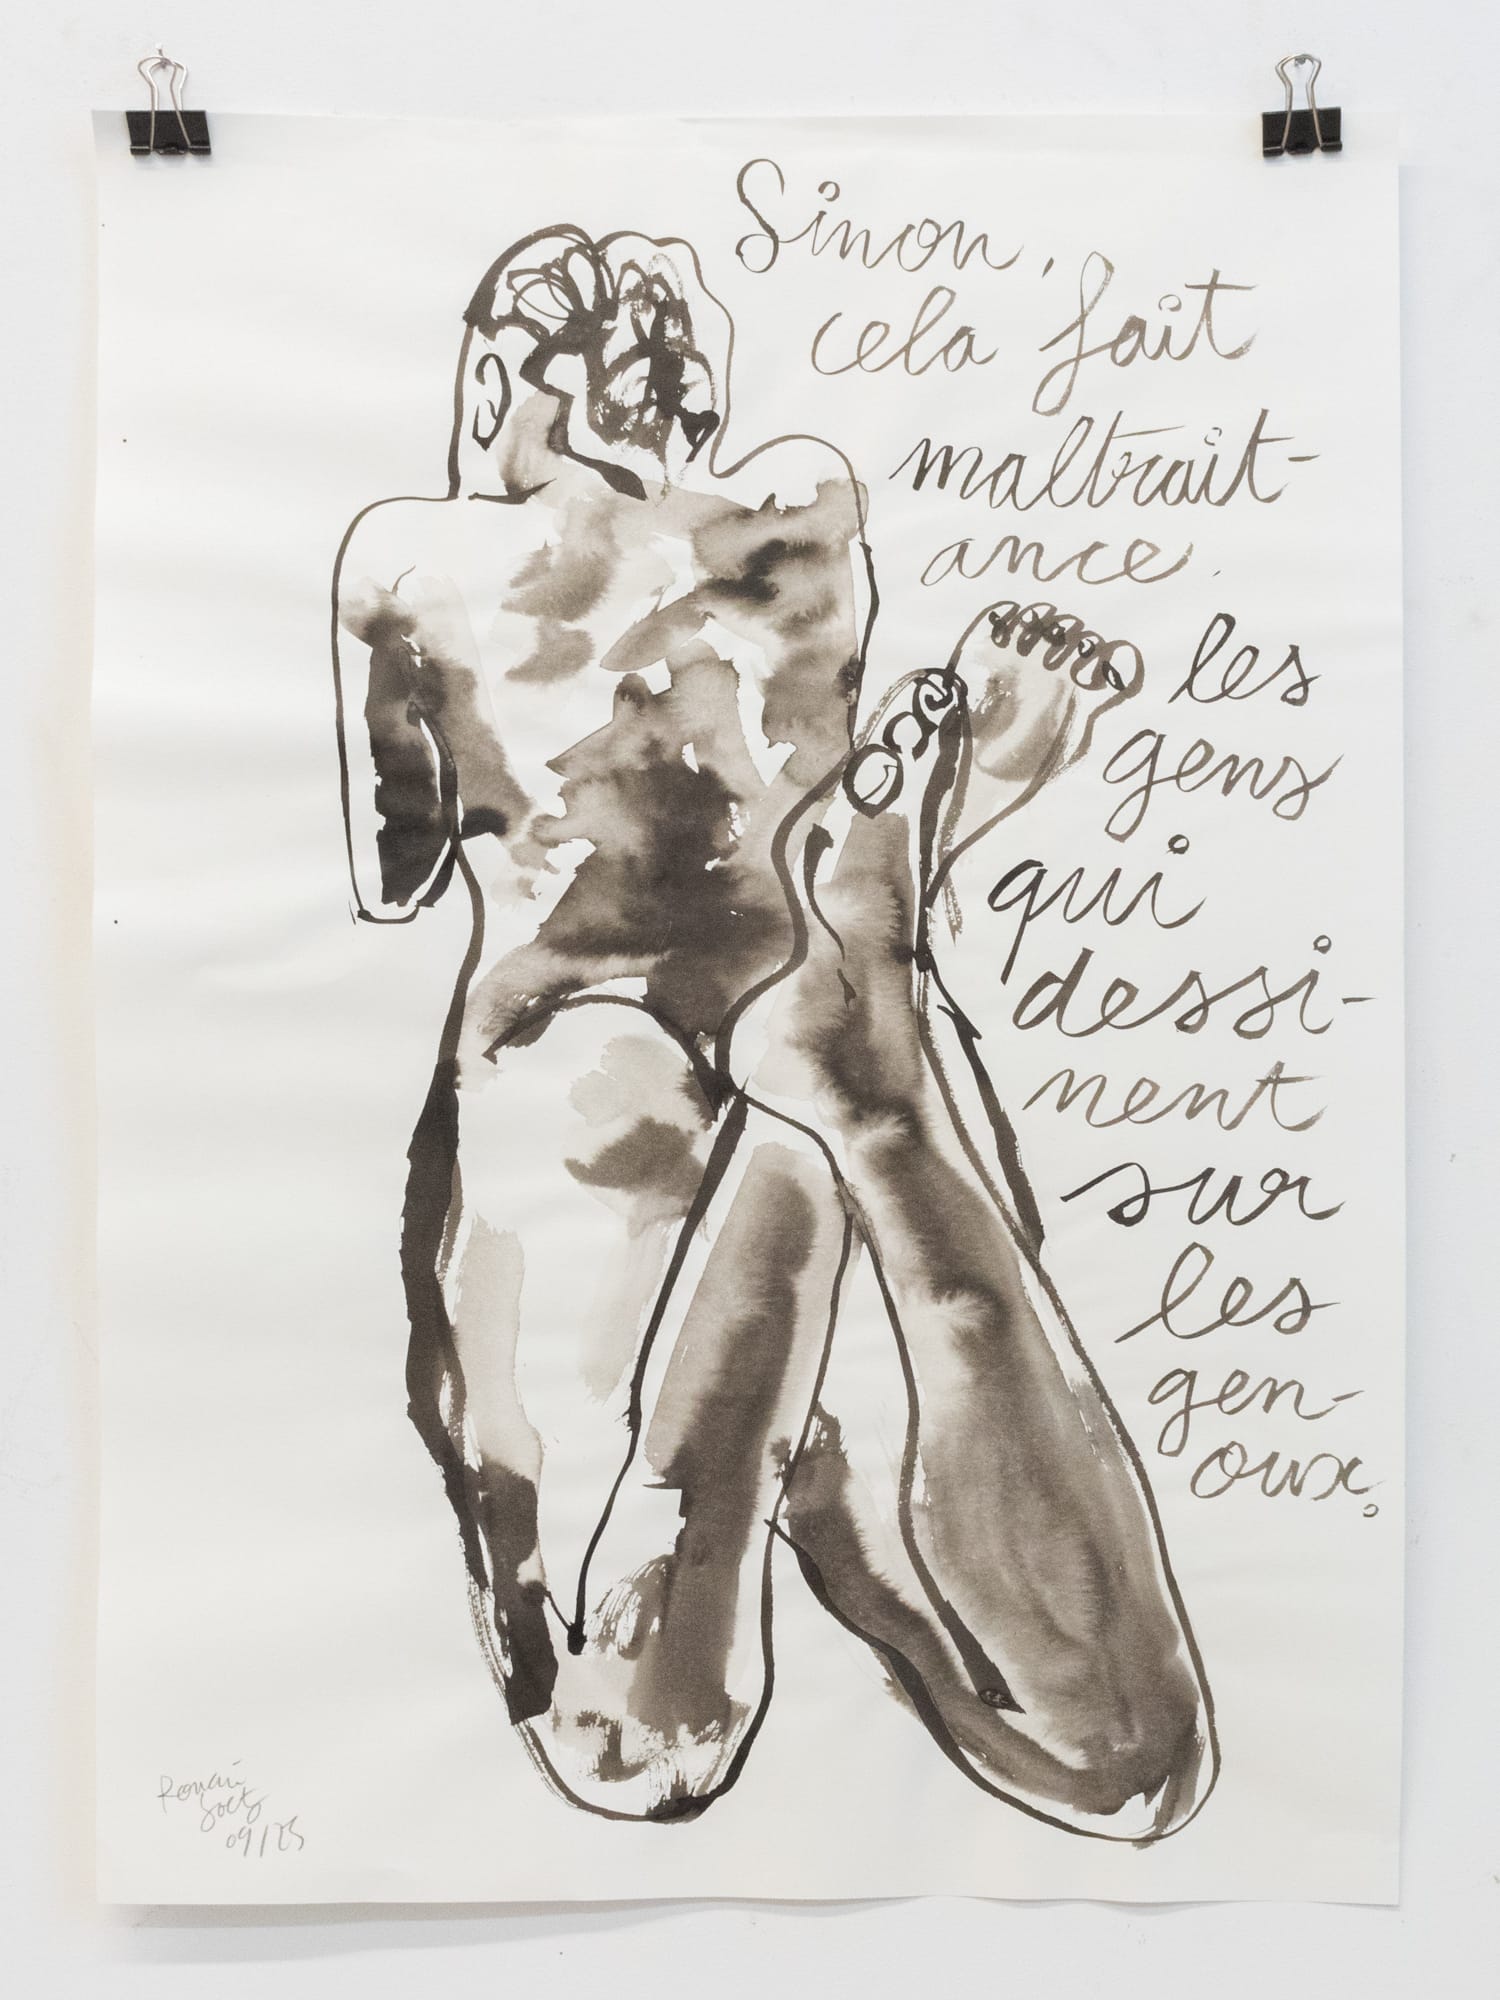 Sinon,
cela fait
maltrait-
ance.
les
gens
qui
dessi-
nent
sur
les
gen-
oux.
Romain
09/25